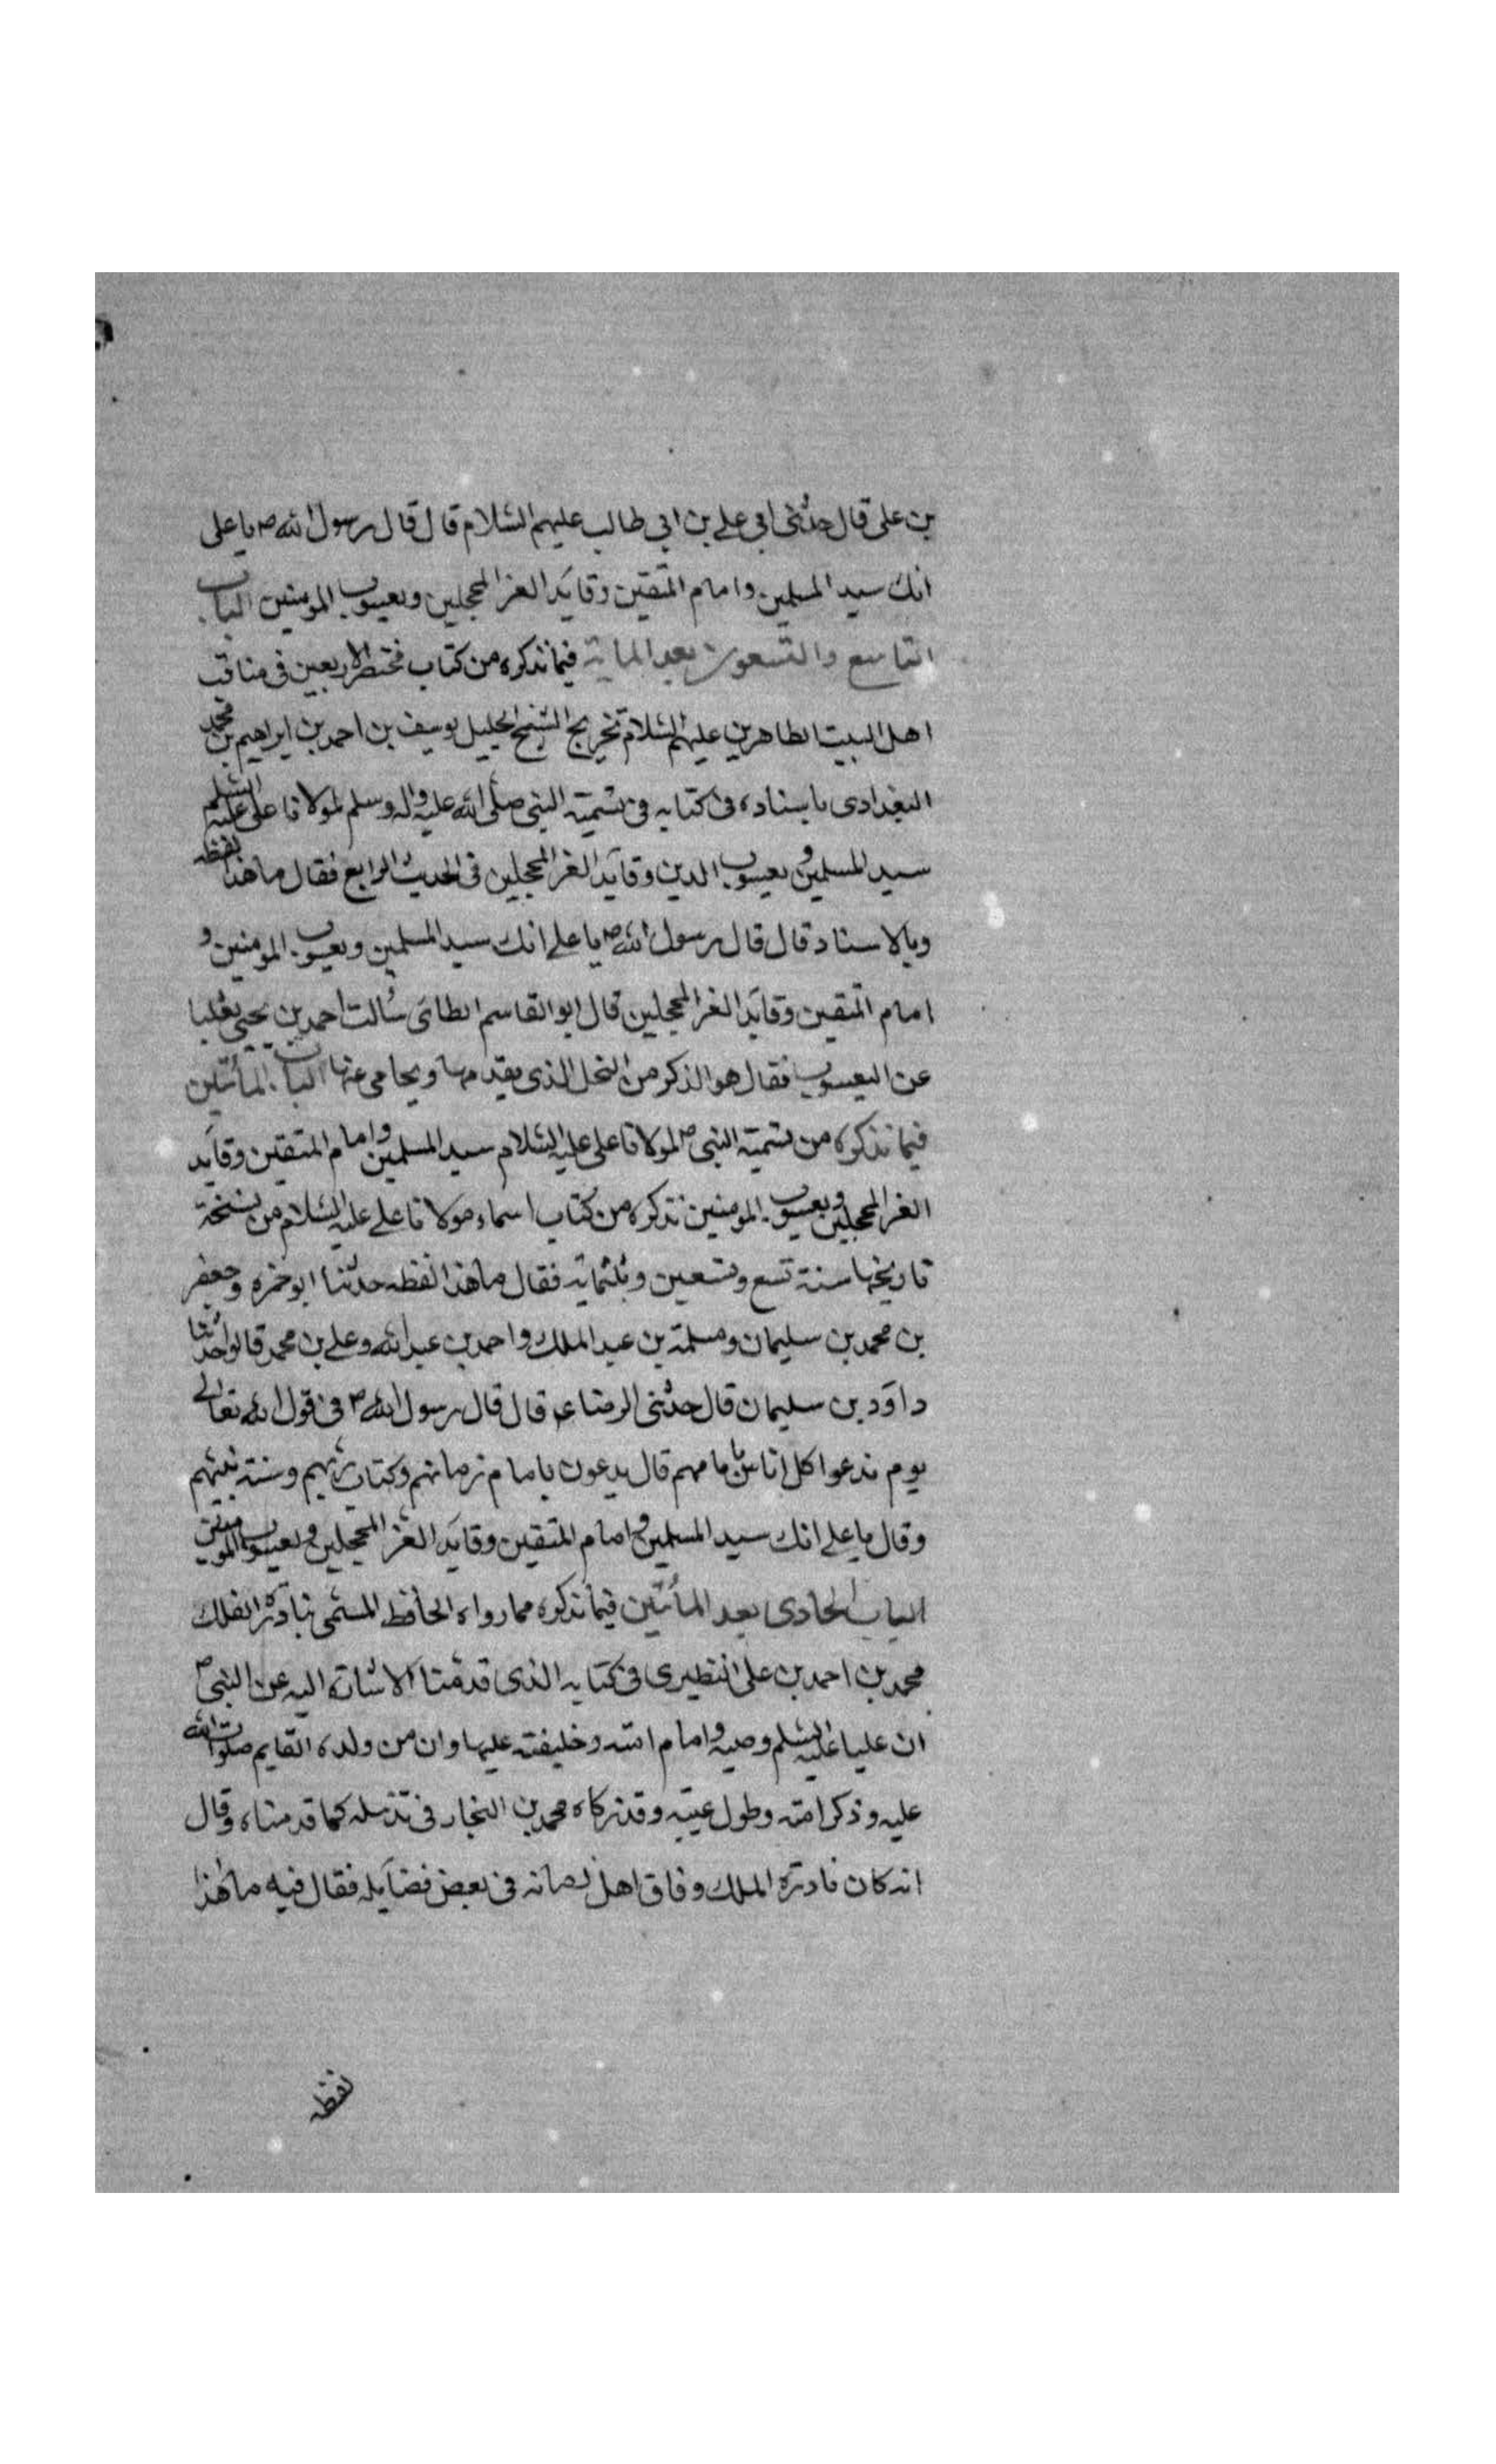 بن علي قال حدثني ابي علي بن ابي طالب عليهم السلام قال قال رسول الله ص يا علي
انك سيد المسلمين وامام المتقين وقايد الغر المحجلين ويعسوب المومنين الباب
التاسع والتسعون بعد الماية فيما نذكره من كتاب مختصر الاربعين في مناقب
اهل البيت الطاهرين عليهم السلام تخريج الشيخ الجليل يوسف بن احمد بن ابراهيم بن محمد
البغدادي باسناده في كتابه في تسمية النبي صلى الله عليه واله وسلم لمولانا علي عليه السلم
سيد المسلمين و يعسوب الدين وقايد الغر المحجلين في الحديث الرابع فقال ما هذا لفظه
وبالاسناد قال قال رسول الله ص يا علي انك سيد المسلمين ويعسوب المومنين و
امام المتقين وقايد الغر المحجلين قال ابو القاسم الطائي سالت احمد بن يحيى ثعلبا
عن اليعسوب فقال هو الذكر من النحل الذي يقدمها ويحامي عنها الباب المأتين
فيما نذكره من تسمية النبي ص لمولانا علي عليه السلام سيد المسلمين وامام المتقين وقايد
الغر المحجلين ويعسوب المومنين نذكره من كتاب اسماء مولانا علي عليه السلام من نسخة
تاريخها سنة تسع وتسعين وثلثماية فقال ما هذا لفظه حدثنا ابو حمزه وجعفر
بن محمد بن سليمان ومسلمة بن عبد الملك واحمد بن عبد الله وعلي بن محمد قالوا حدثنا
داود بن سليمان قال حدثني الرضا ع قال قال رسول الله ص في قول الله تعالى
يوم ندعوا كل اناس بامامهم قال يدعون بامام زمانهم وكتاب ربهم وسنة نبيهم
وقال يا علي انك سيد المسلمين و امام المتقين وقايد الغر المحجلين و يعسوب المومنين
الباب الحادي بعد المأتين فيما نذكره مما رواه الحافظ المسمى نادرة الفلك
محمد بن احمد بن علي النطيري في كتابه الذي قدمنا الاشارة اليه عن النبي ص
ان عليا عليه السلم وصيه و امام امته وخليفته عليها وان من ولده القايم صلوات الله
عليه وذكر امته وطول غيبته وقد زكاه محمد بن النجار في تذييله كما قدمناه وقال
انه كان نادرة الملك وفاق اهل زمانه في بعض فضايله فقال فيه ما هذا
لفظه